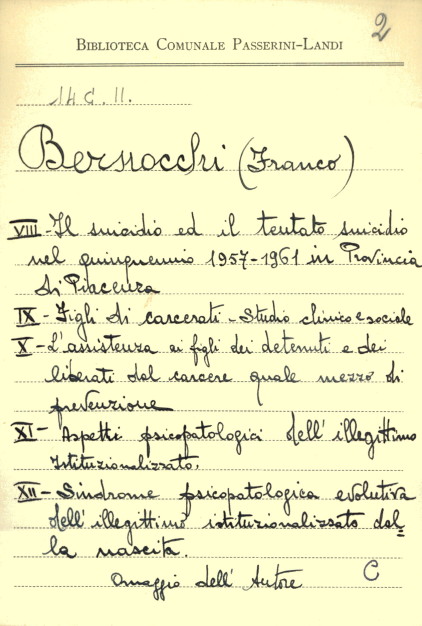 2
BIBLIOTECA COMUNALE PASSERINI-LANDI
14 C. 11.
Bernocchi (Franco)
VIII - Il suicidio ed il tentato suicidio
nel quinquennio 1957-1961 in Provincia
di Piacenza
IX - Figli di carcerati - Studio clinico e sociale
X - L'assistenza ai figli dei detenuti e dei
liberati dal carcere quale mezzo di
prevenzione
XI - Aspetti psicopatologici dell'illegittimo
Istituzionalizzato.
XII - Sindrome psicopatologica evolutiva
dell'illegittimo istituzionalizzato dal=
la nascita.
Omaggio dell'Autore
C